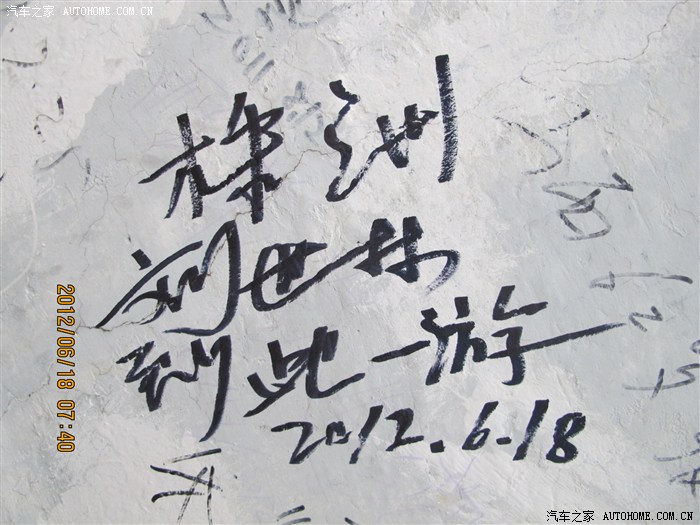 汽车之家 AUTOHOME.COM.CN
株洲
刘世林
到此一游
2012.6.18
2012/06/18 07:40
汽车之家 AUTOHOME.COM.CN